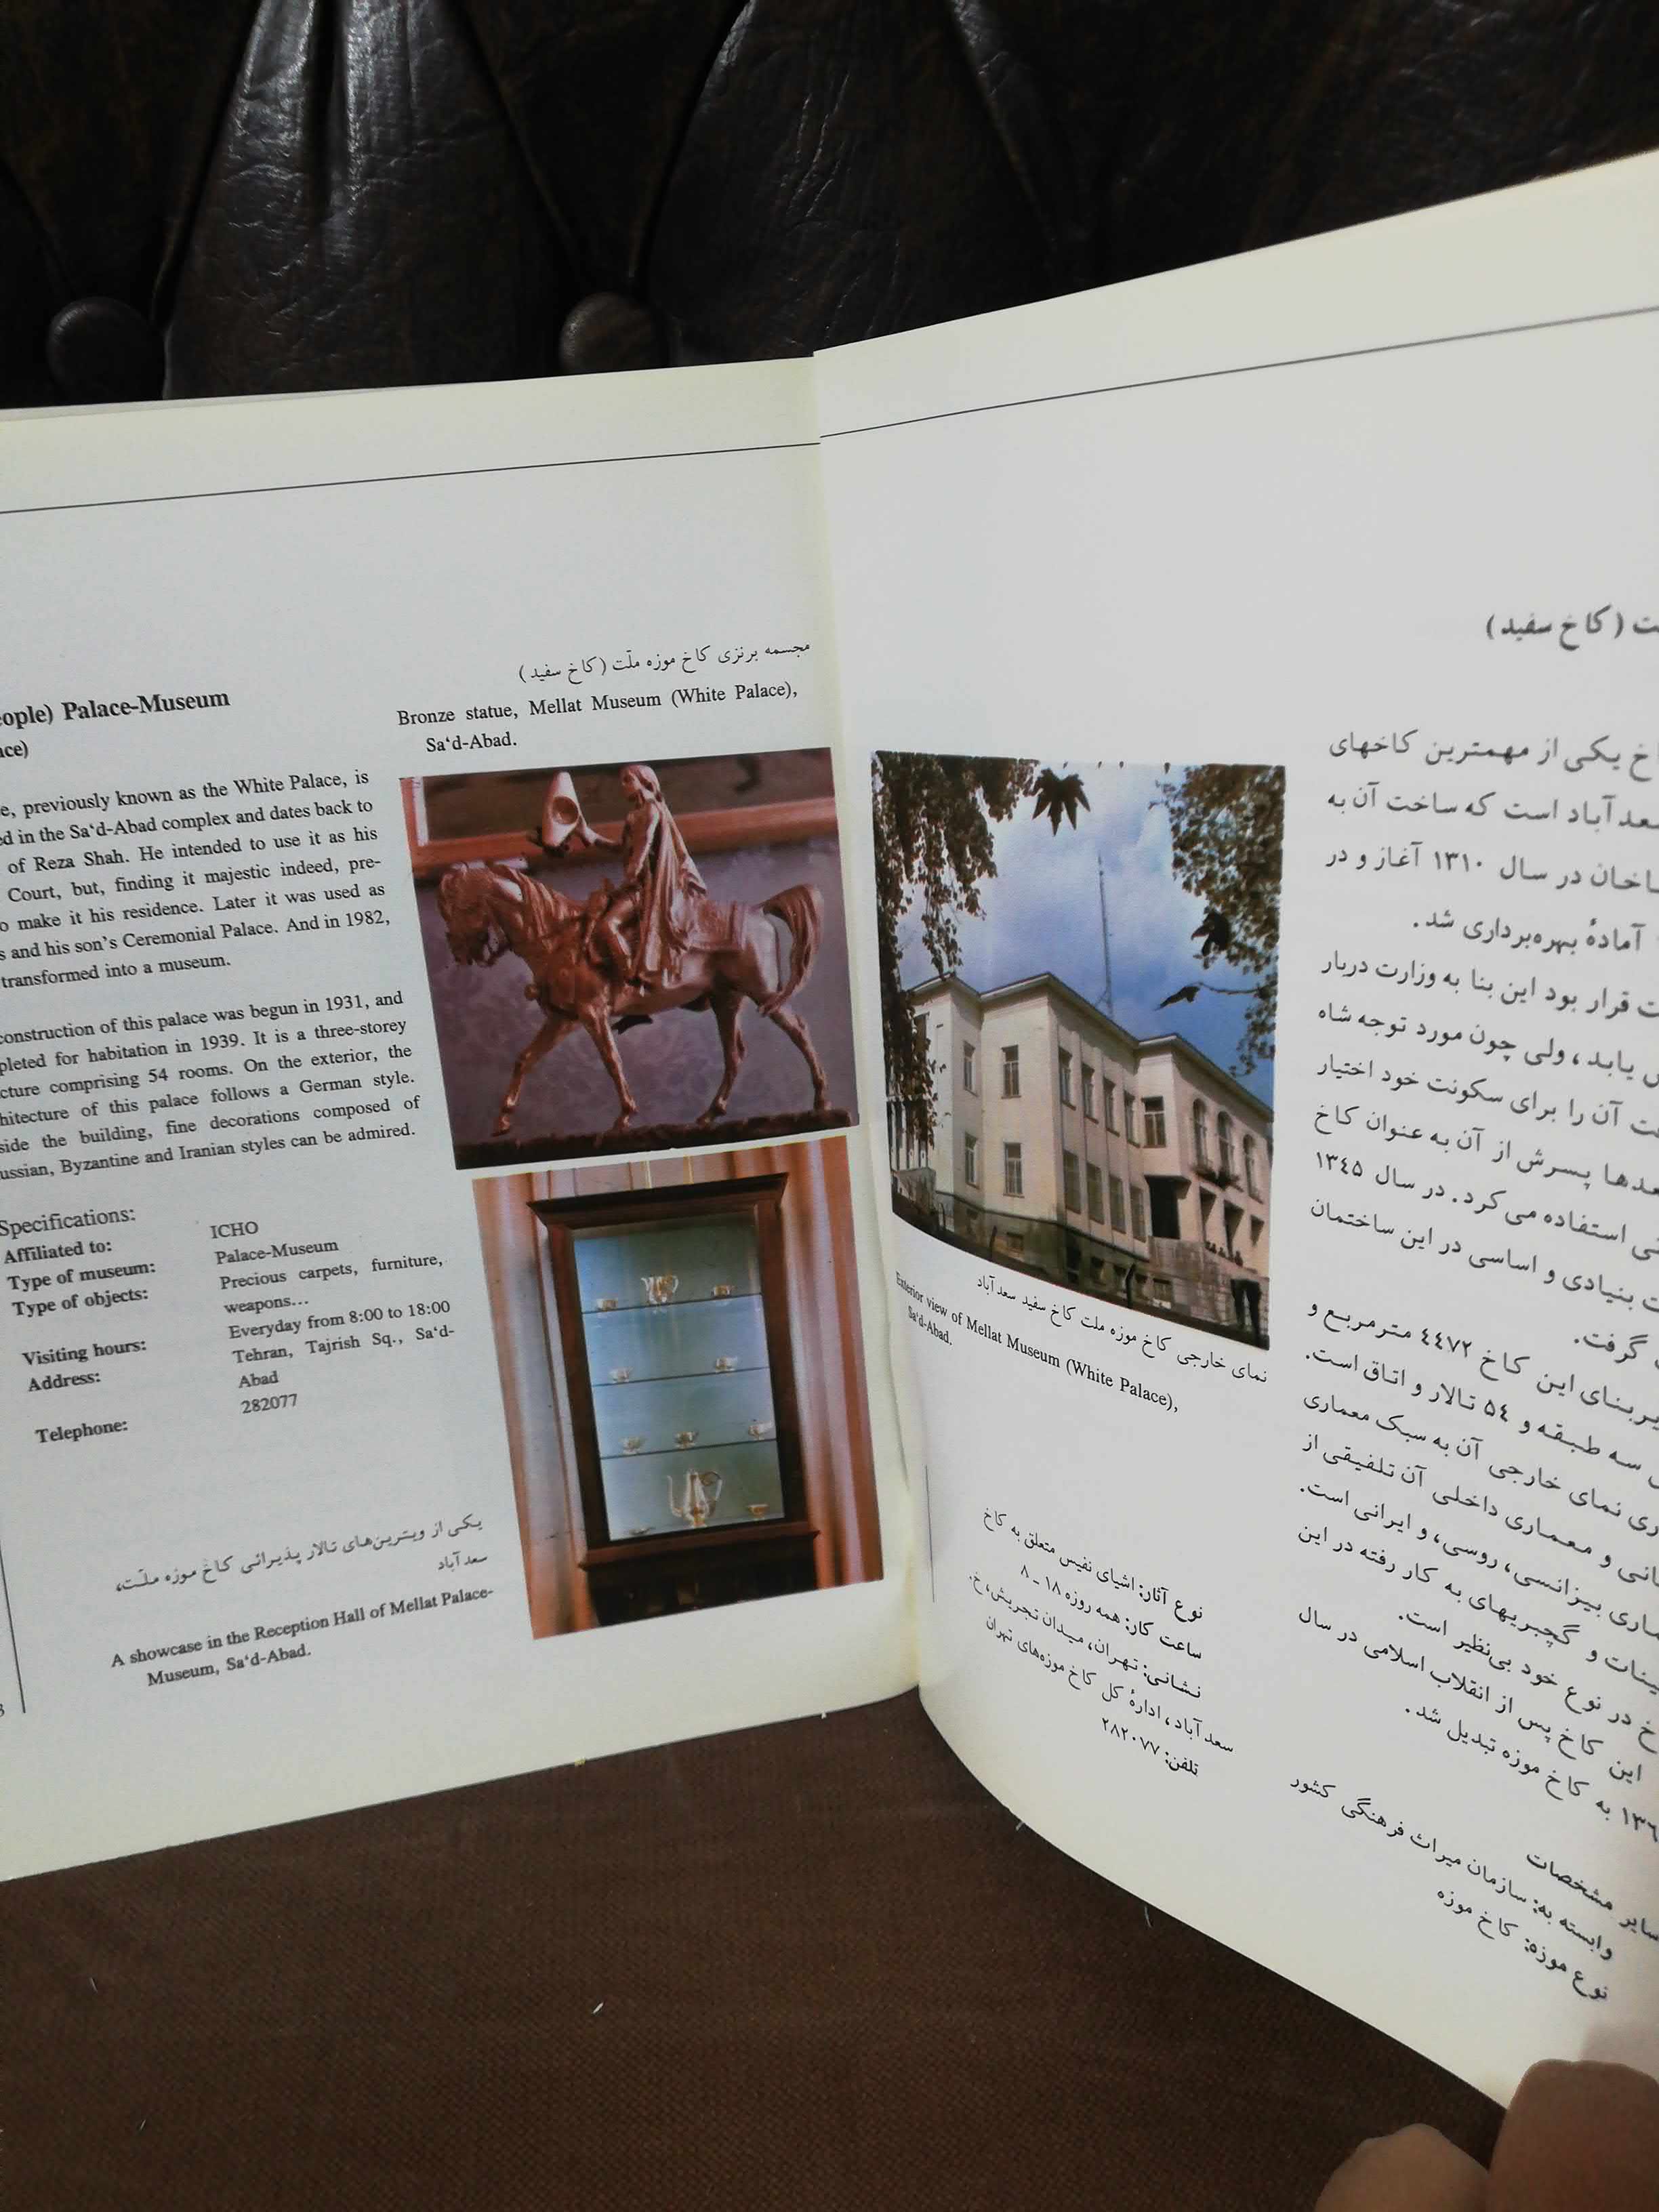 ople) Palace-Museum
ce)
e, previously known as the White Palace, is
ed in the Sa‘d-Abad complex and dates back to
of Reza Shah. He intended to use it as his
Court, but, finding it majestic indeed, pre-
o make it his residence. Later it was used as
s and his son’s Ceremonial Palace. And in 1982,
transformed into a museum.
construction of this palace was begun in 1931, and
pleted for habitation in 1939. It is a three-storey
cture comprising 54 rooms. On the exterior, the
hitecture of this palace follows a German style.
side the building, fine decorations composed of
ussian, Byzantine and Iranian styles can be admired.
Specifications:
Affiliated to: ICHO
Type of museum: Palace-Museum
Type of objects: Precious carpets, furniture,
weapons...
Visiting hours: Everyday from 8:00 to 18:00
Address: Tehran, Tajrish Sq., Sa‘d-
Abad
Telephone: 282077
یکی از ویترین‌های تالار پذیرائی کاخ موزه ملّت،
سعدآباد
A showcase in the Reception Hall of Mellat Palace-
Museum, Sa‘d-Abad.
مجسمه برنزی کاخ موزه ملّت (کاخ سفید)
Bronze statue, Mellat Museum (White Palace),
Sa‘d-Abad.
ت (کاخ سفید)
اخ یکی از مهمترین کاخهای
سعدآباد است که ساخت آن به
ضاخان در سال ۱۳۱۰ آغاز و در
آمادهٔ بهره‌برداری شد.
ت قرار بود این بنا به وزارت دربار
ص یابد، ولی چون مورد توجه شاه
آن را برای سکونت خود اختیار
بعدها پسرش از آن به عنوان کاخ
استفاده می‌کرد. در سال ۱۳٤۵
بنیادی و اساسی در این ساختمان
گرفت.
زیربنای این کاخ ٤٤۷۲ مترمربع و
سه طبقه و ۵٤ تالار و اتاق است.
نمای خارجی آن به سبک معماری
و معماری داخلی آن تلفیقی از
معماری بیزانسی، روسی، و ایرانی است.
و گچبریهای به کار رفته در این
در نوع خود بی‌نظیر است.
این کاخ پس از انقلاب اسلامی در سال
به کاخ موزه تبدیل شد.
سایر مشخصات
وابسته به: سازمان میراث فرهنگی کشور
نوع موزه: کاخ موزه
نمای خارجی کاخ موزه ملت کاخ سفید سعدآباد
Exterior view of Mellat Museum (White Palace),
Sa‘d-Abad.
نوع آثار: اشیای نفیس متعلق به کاخ
ساعت کار: همه روزه ۱۸ ـ ۸
نشانی: تهران، میدان تجریش، خ.
سعدآباد، ادارهٔ کل کاخ موزه‌های تهران
تلفن: ۲۸۲۰۷۷